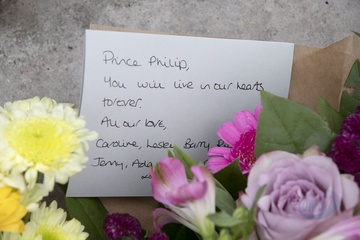 Prince Philip,
You will live in our hearts
forever.
All our love,
Caroline, Lesley, Barry,
Jenny,